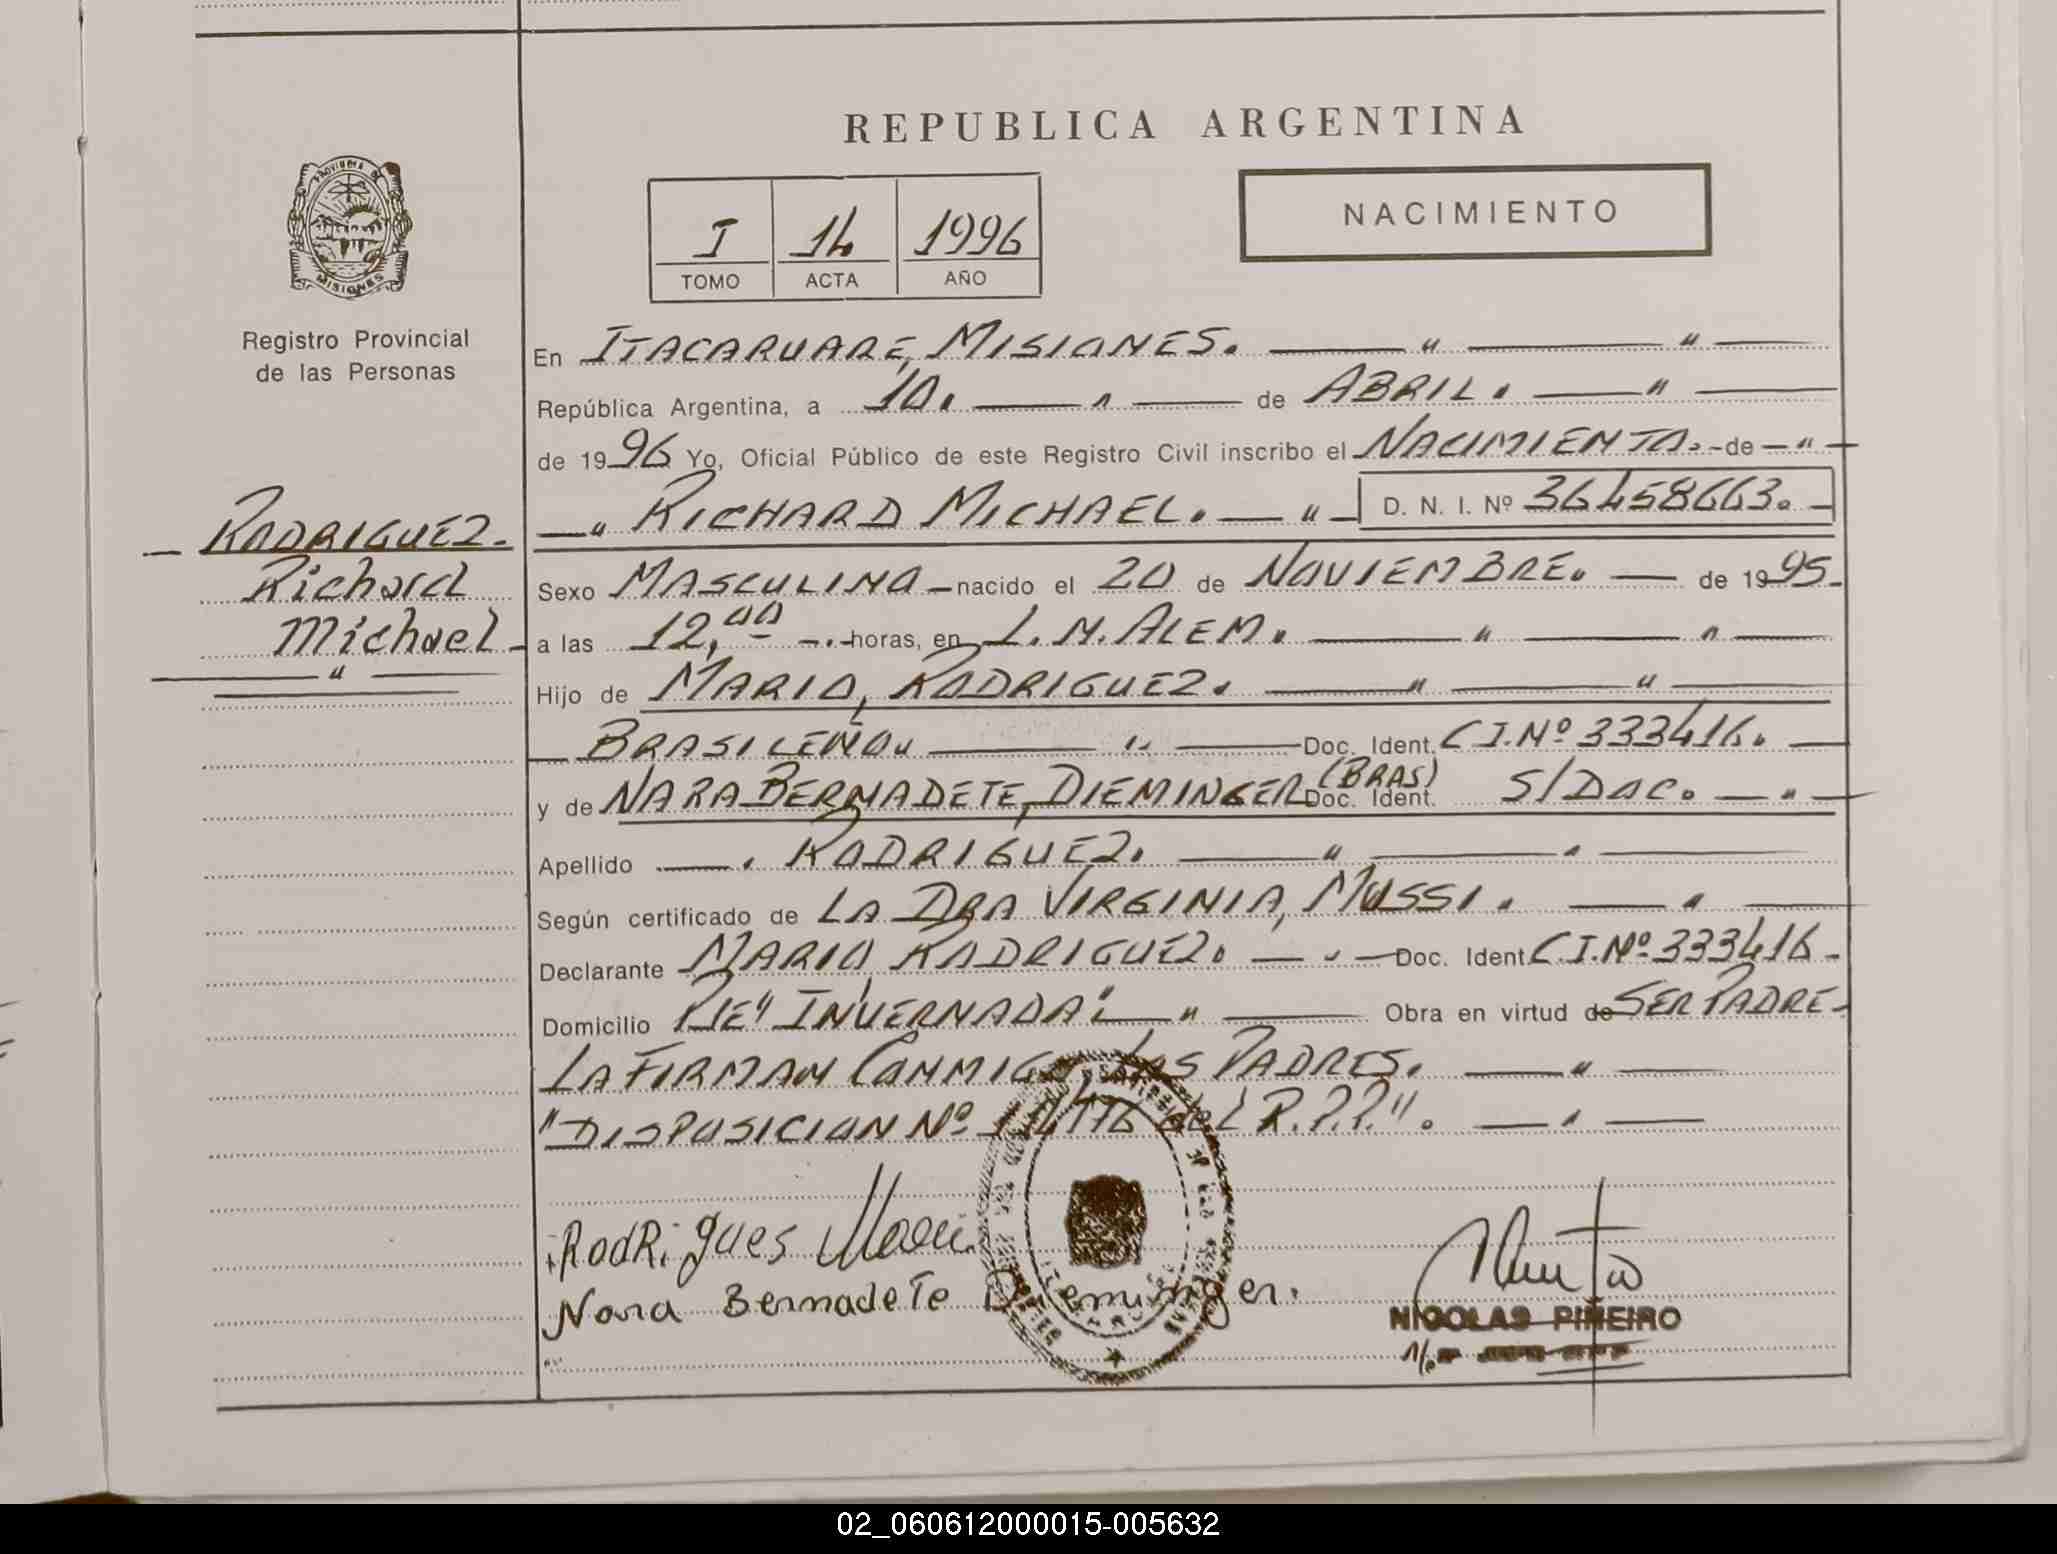 REPUBLICA ARGENTINA
PROVINCIA DE
MISIONES
Registro Provincial
de las Personas
I 14 1996
TOMO ACTA AÑO
NACIMIENTO
RODRIGUEZ.
Richard
Michael
En ITACARUARE, MISIONES.
República Argentina, a 10. de ABRIL.
de 1996 Yo, Oficial Público de este Registro Civil inscribo el NACIMIENTO. de
RICHARD MICHAEL. D. N. I. Nº 36458663.
Sexo MASCULINO nacido el 20 de NOVIEMBRE. de 1995.
a las 12,00 horas, en L.N.ALEM.
Hijo de MARIO, RODRIGUEZ.
BRASILEÑO. Doc. Ident. C.I.Nº 333416.
y de NARA BERNADETE, DIEMINGER (BRAS) Doc. Ident. S/DOC.
Apellido RODRIGUEZ.
Según certificado de LA DRA VIRGINIA, MUSSI.
Declarante MARIO, RODRIGUEZ. Doc. Ident. C.I.Nº 333416.
Domicilio PJE "INVERNADA". Obra en virtud de SER PADRE.
LA FIRMAN CONMIGO, LOS PADRES.
"DISPOSICION Nº del R.P.P.".
RodRigues
Nara BernadeTe Dieminger.
NICOLAS PIÑEIRO
02_060612000015-005632